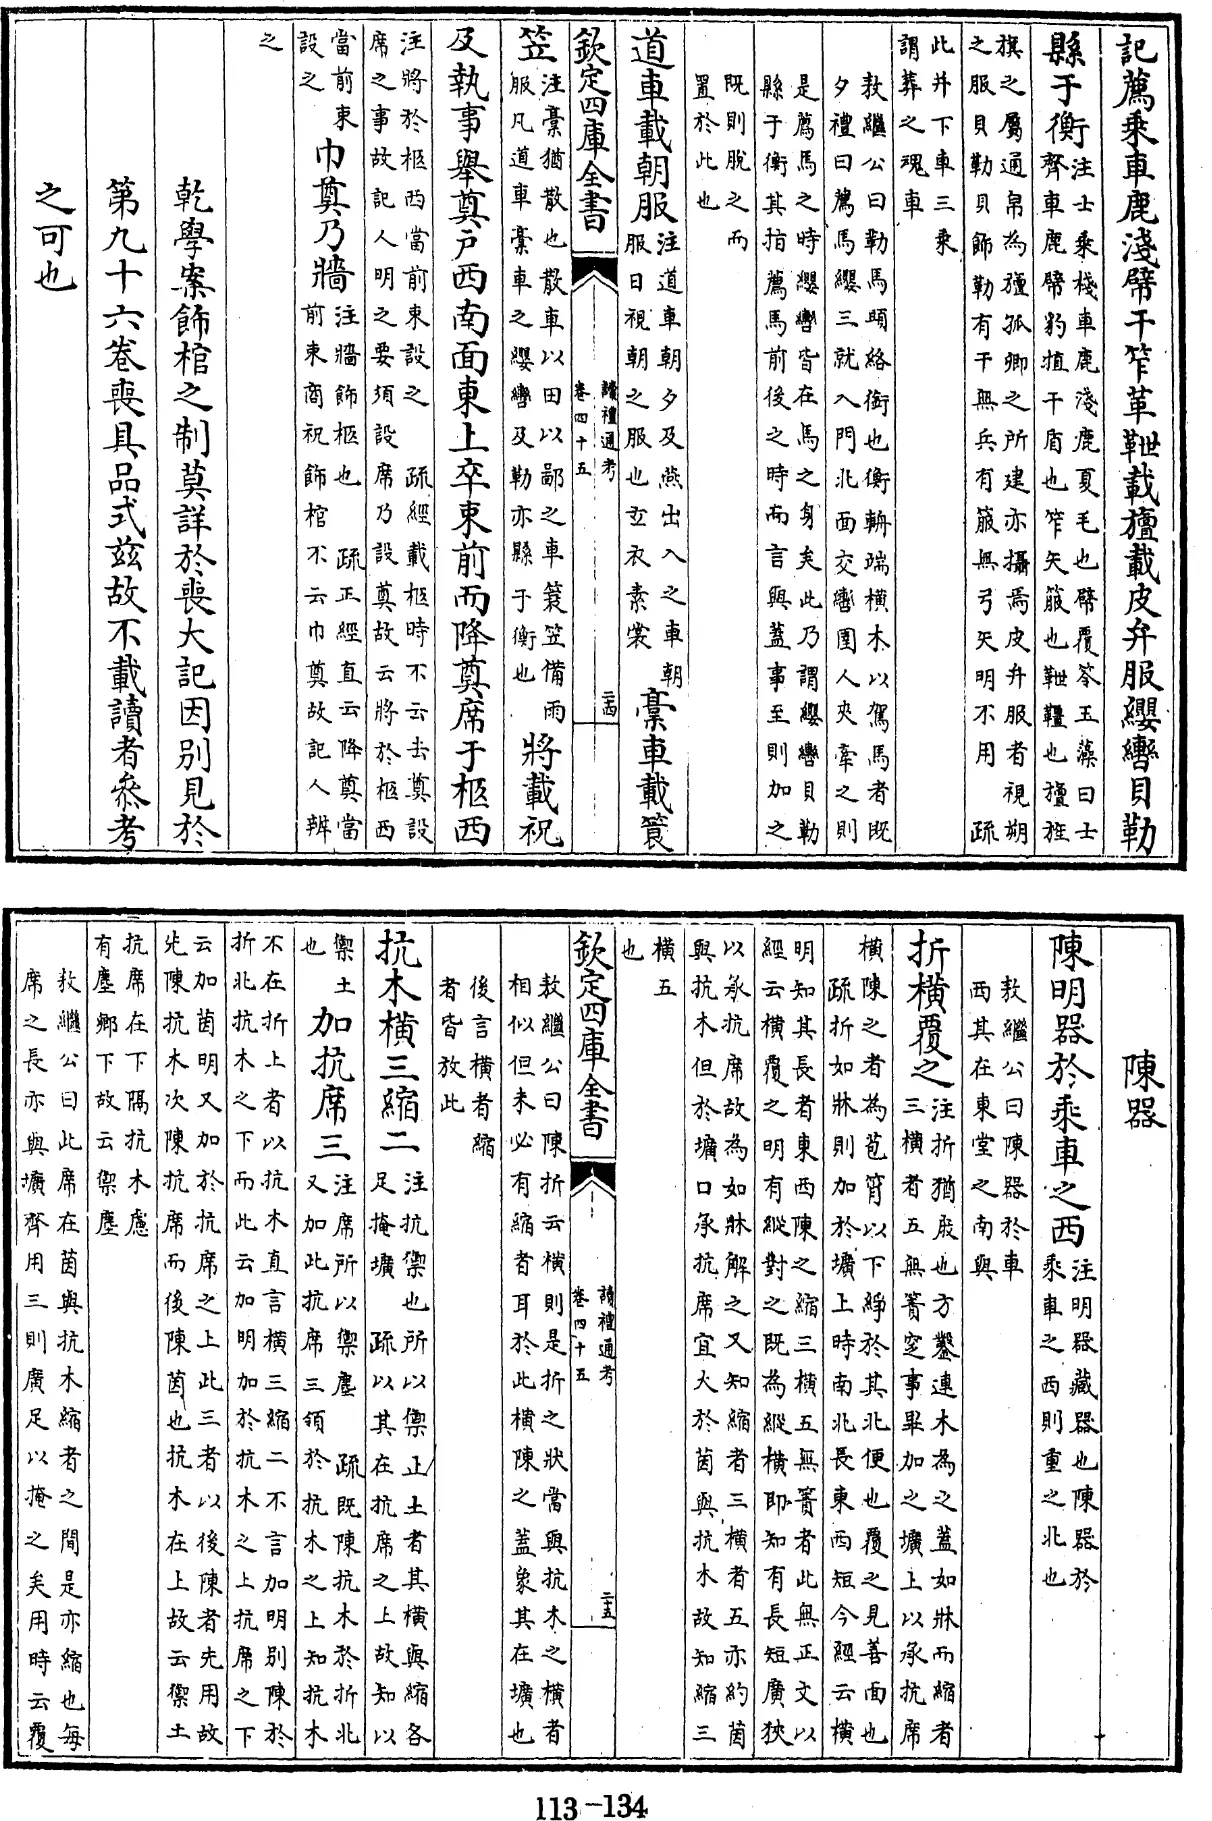 記薦乘車鹿淺幦干笮革靾載旜載皮弁服纓轡貝勒
縣于衡注士乘棧車鹿淺鹿夏毛也幦覆笭玉藻曰士齊車鹿幦豹犆干盾也笮矢箙也靾韁也旜旌
旗之屬通帛為旜孤卿之所建亦攝焉皮弁服者視朔之服貝勒貝飾勒有干無兵有箙無弓矢明不用 疏
此并下車三乘謂葬之魂車
敖繼公曰勒馬頭絡銜也衡輈端橫木以駕馬者既夕禮曰薦馬纓三就入門北面交轡圉人夾牽之則
是薦馬之時纓轡皆在馬之身矣此乃謂纓轡貝勒縣于衡其指薦馬前後之時而言與蓋事至則加之
既則脫之而置於此也
道車載朝服注道車朝夕及燕出入之車朝服日視朝之服也玄衣素裳槀車載蓑
欽定四庫全書 讀禮通考 卷四十五 二四
笠注槀猶散也散車以田以鄙之車蓑笠備雨服凡道車槀車之纓轡及勒亦縣于衡也將載祝
及執事舉奠戶西南面東上卒束前而降奠席于柩西
注將於柩西當前束設之 疏經載柩時不云去奠設席之事故記人明之要須設席乃設奠故云將於柩西
當前束設之巾奠乃牆注牆飾柩也 疏正經直云降奠當前束商祝飾棺不云巾奠故記人辨
之
乾學案飾棺之制莫詳於喪大記因別見於
第九十六卷喪具品式茲故不載讀者參考
之可也
陳器
陳明器於乘車之西注明器藏器也陳器於乘車之西則重之北也
敖繼公曰陳器於車西其在東堂之南與
折橫覆之注折猶庪也方鑿連木為之蓋如牀而縮者三橫者五無簀窆事畢加之壙上以承抗席
橫陳之者為苞筲以下綷於其北便也覆之見善面也 疏折如牀則加於壙上時南北長東西短今經云橫
明知其長者東西陳之縮三橫五無簀者此無正文以經云橫覆之明有縱對之既為縱橫即知有長短廣狹
以承抗席故為如牀解之又知縮者三橫者五亦約茵與抗木但於壙口承抗席宜大於茵與抗木故知縮三
橫五也
欽定四庫全書 讀禮通考 卷四十五 二五
敖繼公曰陳折云橫則是折之狀當與抗木之橫者相似但未必有縮者耳於此橫陳之蓋象其在壙也
後言橫者縮者皆放此
抗木橫三縮二注抗禦也所以禦止土者其橫與縮各足掩壙 疏以其在抗席之上故知以
禦土也加抗席三注席所以禦塵 疏既陳抗木於折北又加此抗席三領於抗木之上知抗木
不在折上者以抗木直言橫三縮二不言加明別陳於折北抗木之下而此云加明加於抗木之上抗席之下
云加茵明又加於抗席之上此三者以後陳者先用故先陳抗木次陳抗席而後陳茵也抗木在上故云禦土
抗席在下隔抗木慮有塵鄉下故云禦塵
敖繼公曰此席在茵與抗木縮者之間是亦縮也每席之長亦與壙齊用三則廣足以掩之矣用時云覆
113-134